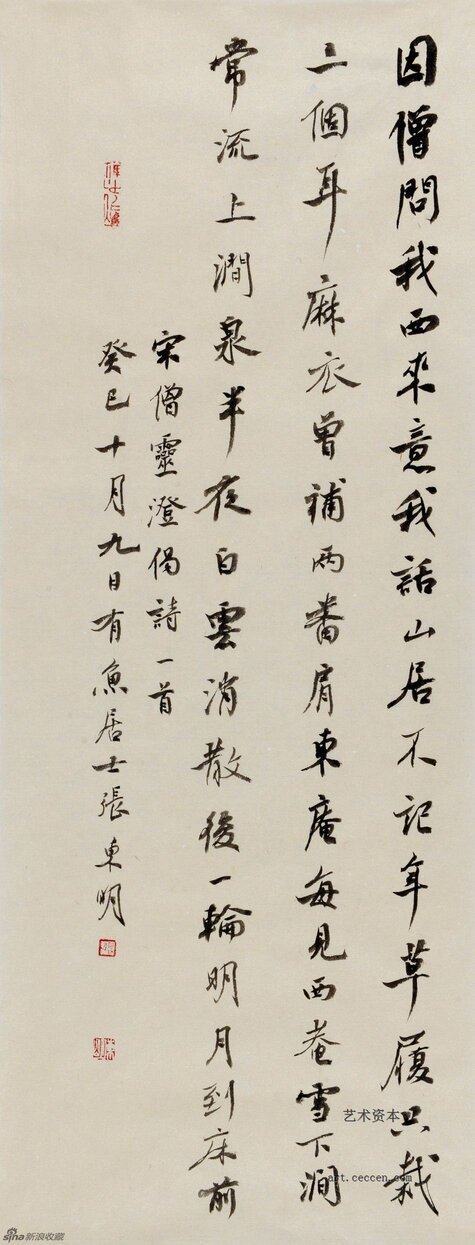 因僧問我西來意我話山居不記年草履只栽
三個耳麻衣曾補兩番肩東庵每見西菴雪下澗
常流上澗泉半夜白雲消散後一輪明月到床前
宋僧靈澄偈詩一首
癸巳十月九日有魚居士張東明
艺术资本
art.ceccen.com
sina新浪收藏